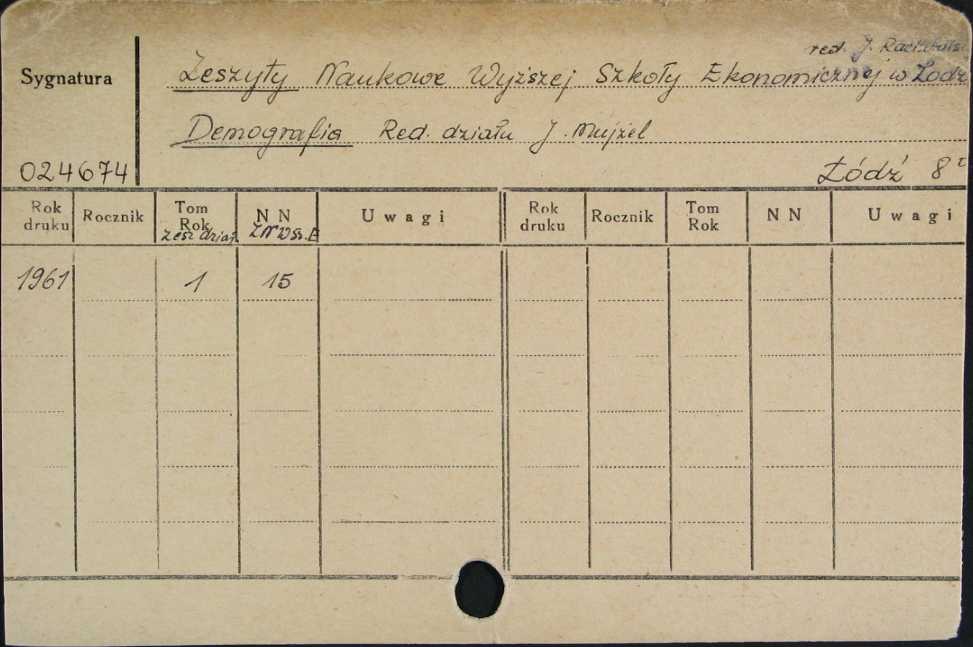 red. J.
Sygnatura
Zeszyty Naukowe Wyższej Szkoły Ekonomicznej w Łodzi
Demografia Red. działu J. Mujżel
024674
Łódź 8°
Rok druku Rocznik Tom Rok zesz. dział. NN ZNWSE Uwagi Rok druku Rocznik Tom Rok NN Uwagi
1961 1 15